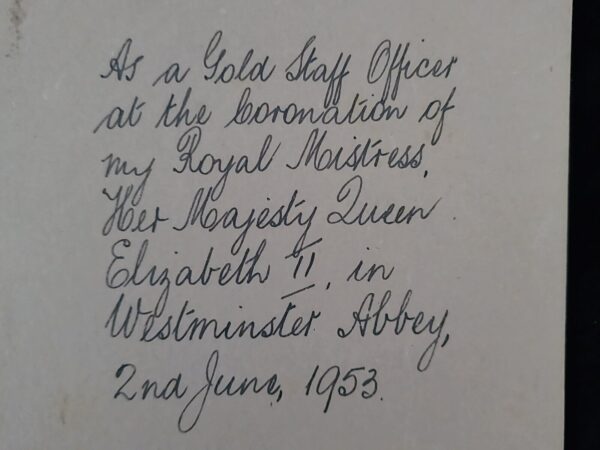 As a Gold Staff Officer
at the Coronation of
my Royal Mistress,
Her Majesty Queen
Elizabeth II, in
Westminster Abbey,
2nd June, 1953.